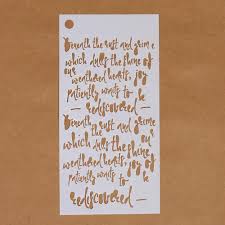 Beneath the rust and grime
which dulls the shine of
our
weathered hearts, joy
patiently waits to be
— rediscovered —
Beneath the rust and grime
our
which dulls the shine
weathered hearts, joy of
patiently waits to be
rediscovered —